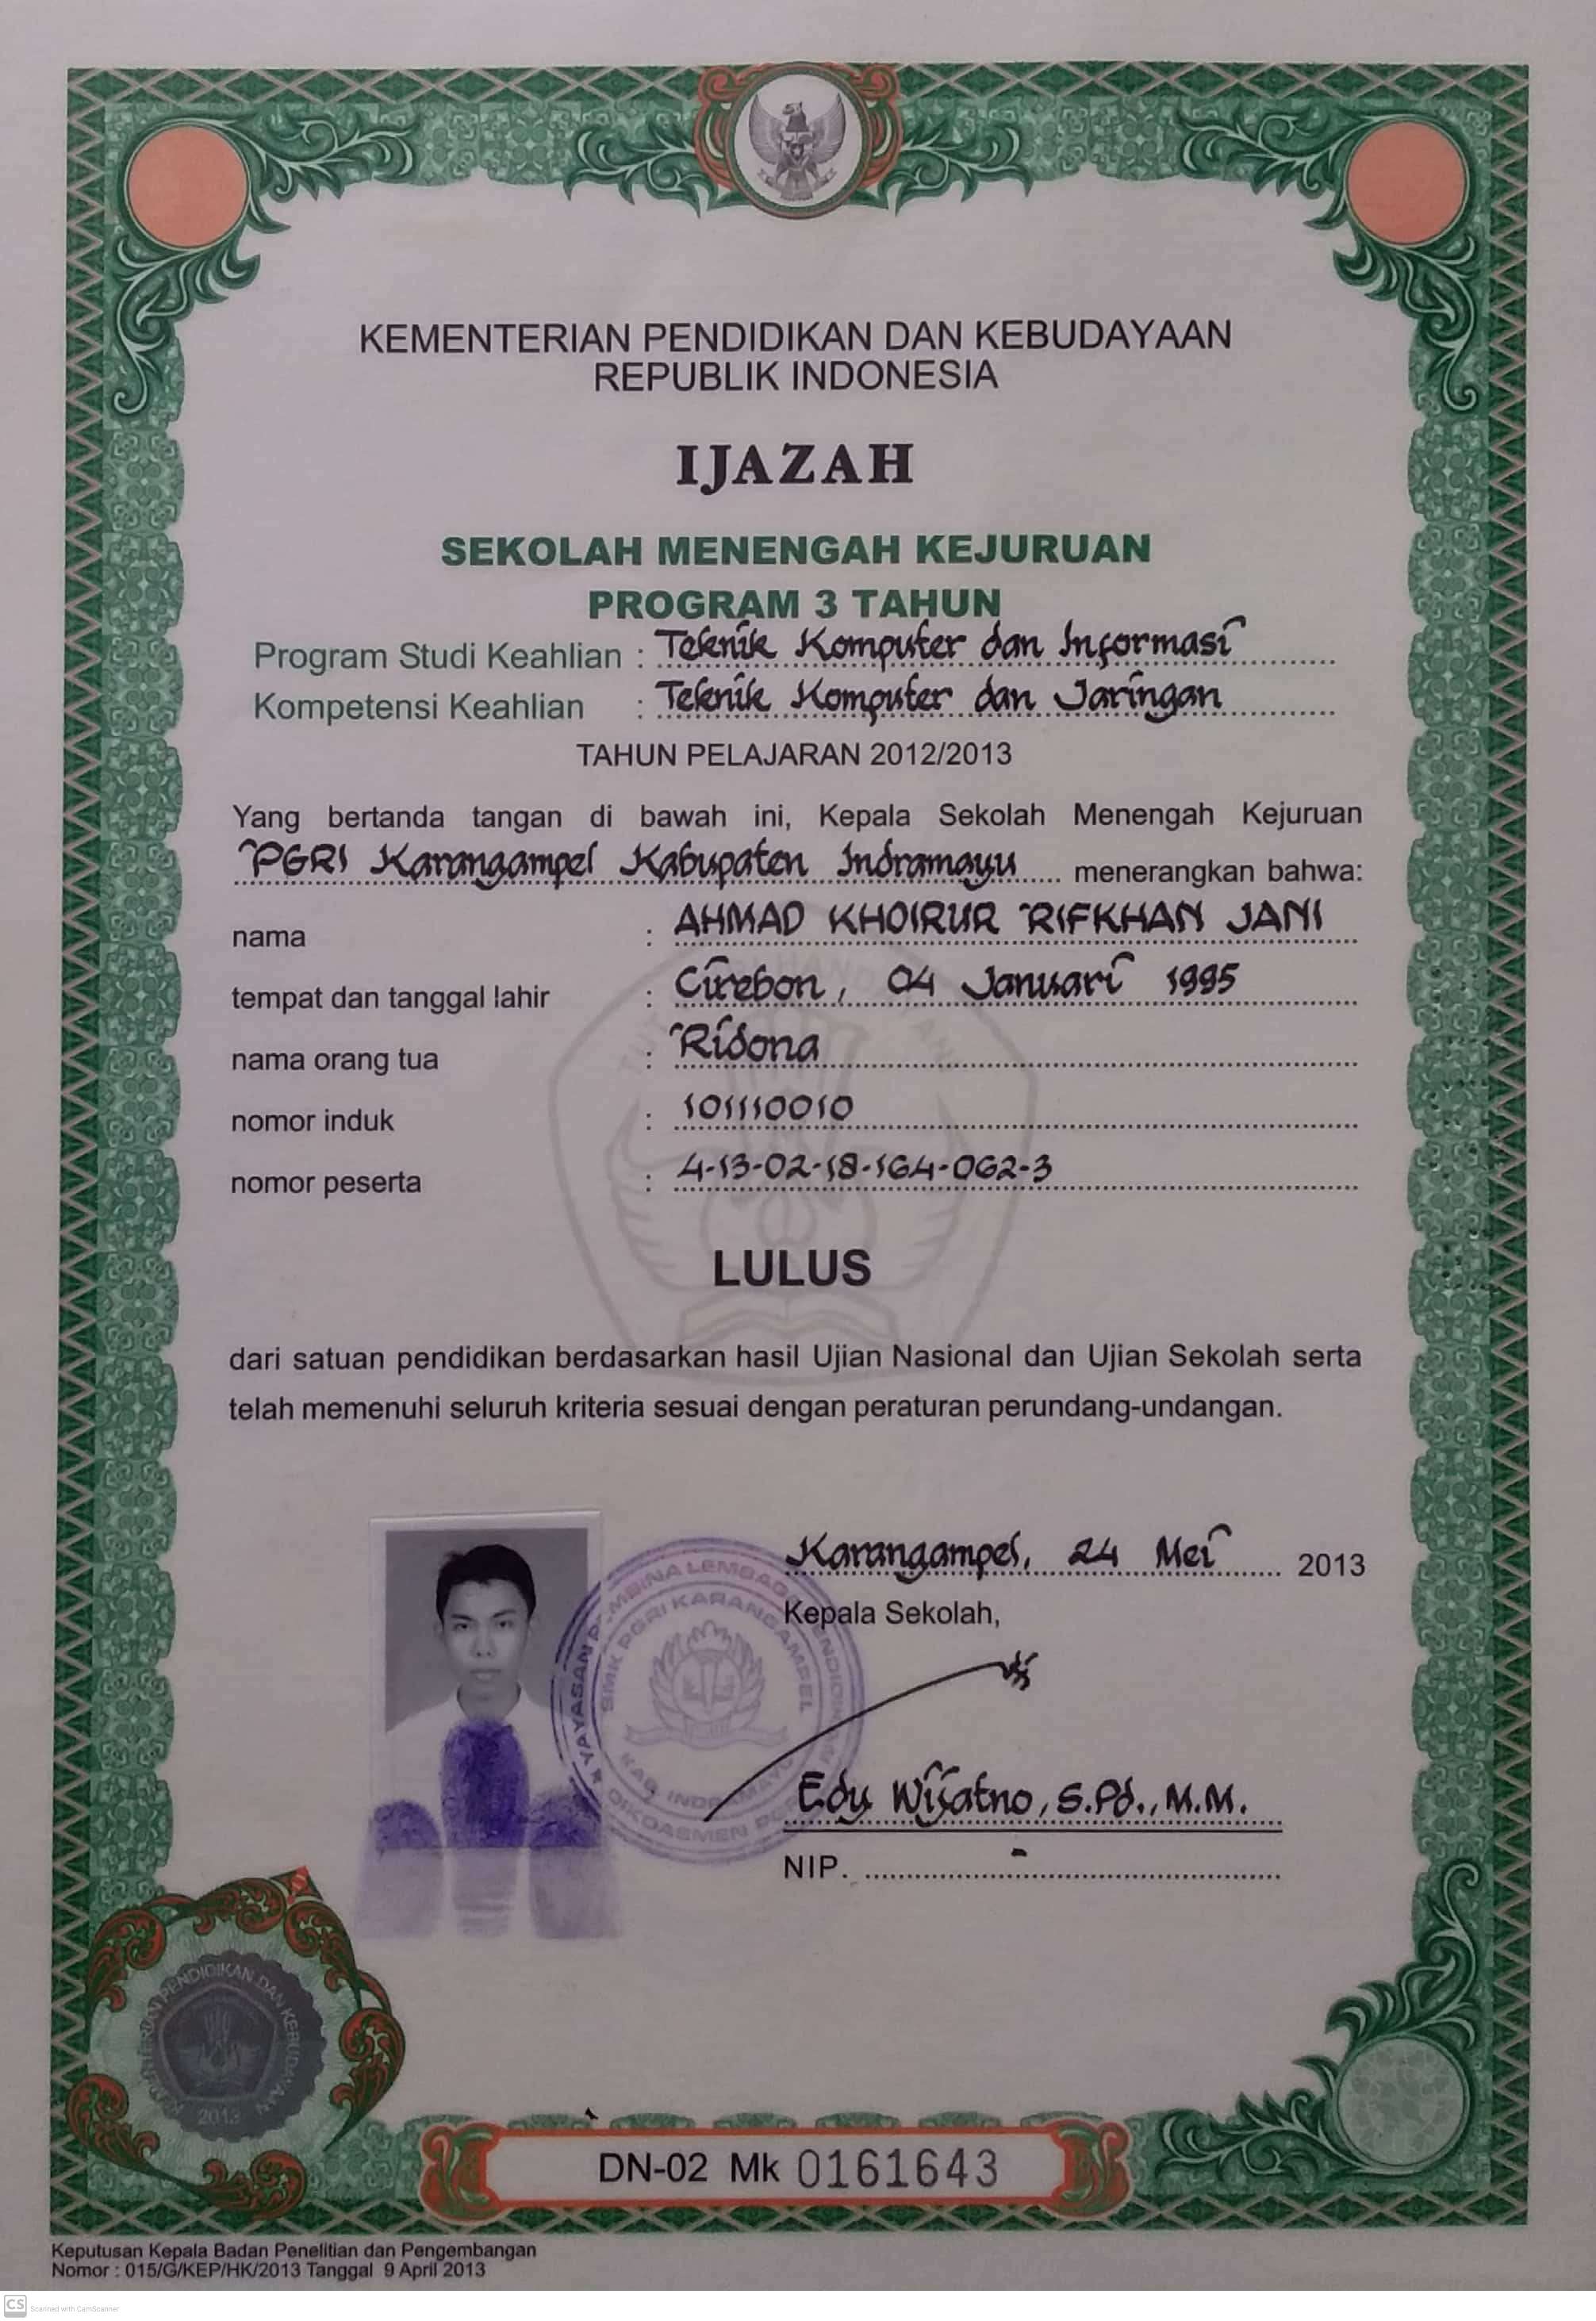 KEMENTERIAN PENDIDIKAN DAN KEBUDAYAAN
REPUBLIK INDONESIA
IJAZAH
SEKOLAH MENENGAH KEJURUAN
PROGRAM 3 TAHUN
Program Studi Keahlian : Teknik Komputer dan Informasi
Kompetensi Keahlian : Teknik Komputer dan Jaringan
TAHUN PELAJARAN 2012/2013
Yang bertanda tangan di bawah ini, Kepala Sekolah Menengah Kejuruan
PGRI Karangampel Kabupaten Indramayu menerangkan bahwa:
nama : AHMAD KHOIRUR RIFKHAN JANI
tempat dan tanggal lahir : Cirebon, 04 Januari 1995
nama orang tua : Ridona
nomor induk : 101110010
nomor peserta : 4-13-02-18-164-062-3
LULUS
dari satuan pendidikan berdasarkan hasil Ujian Nasional dan Ujian Sekolah serta
telah memenuhi seluruh kriteria sesuai dengan peraturan perundang-undangan.
Karangampel, 24 Mei 2013
Kepala Sekolah,
SMK PGRI KARANGAMPEL
KAB. INDRAMAYU
Edy Wijatno, S.Pd., M.M.
NIP. -
KEMENTERIAN PENDIDIKAN DAN KEBUDAYAAN
2013
DN-02 Mk 0161643
Keputusan Kepala Badan Penelitian dan Pengembangan
Nomor : 015/G/KEP/HK/2013 Tanggal 9 April 2013
CS Scanned with CamScanner